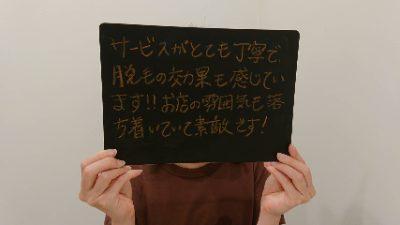 サービスがとても丁寧で、
脱毛の効果も感じてい
ます!!お店の雰囲気も落
ち着いていて素敵です!